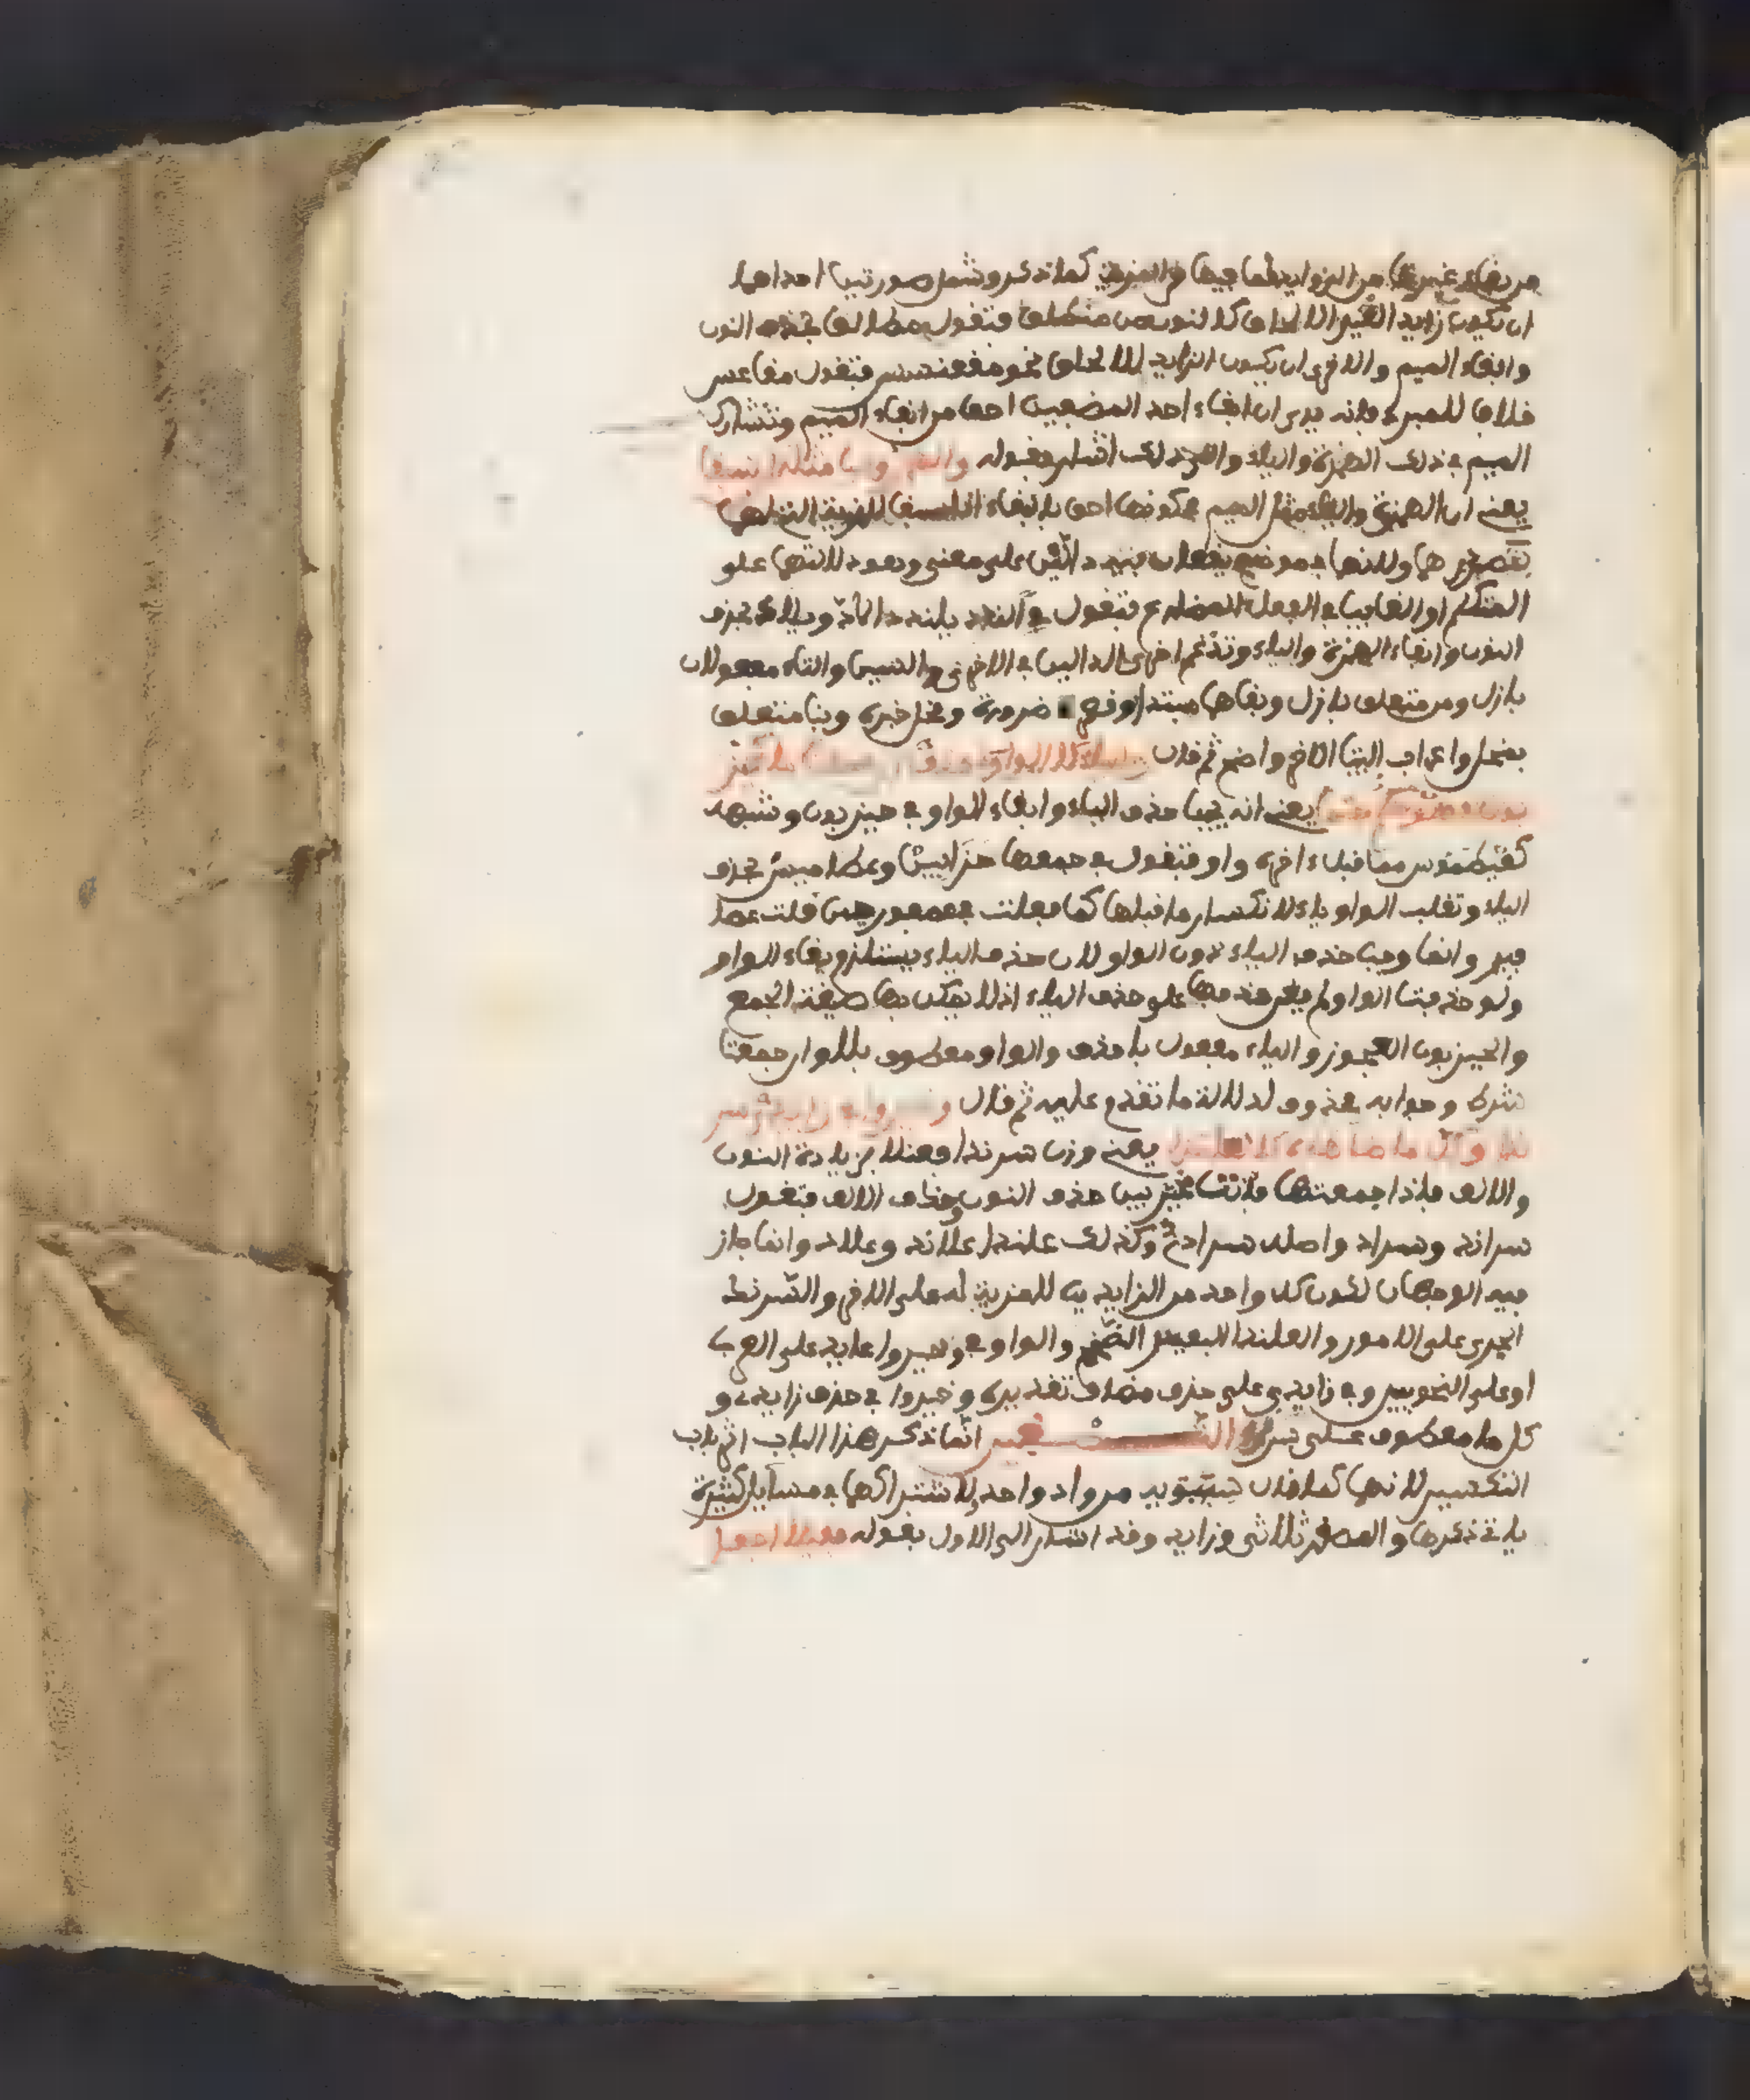 من بقاء غيرها من الزوايد لما فيها من المزية كما ذكر وشمل صورتين احداهما
ان يكون زايد الغير الالحاق كالنون من منطلق فتقول مطالق بحذف النون
وابقاء الميم والاخرى ان يكون الزايد للالحاق نحو مقعنسس فتقول مقاعس
خلافا للمبرد فانه يرى ان ابقاء احد المضعفين احق من ابقاء الميم وتشارك
الميم في ذلك الهمزة والياء والى ذلك اشار بقوله والهمز واليا مثله ان سبقا
يعني ان الهمزة والياء مثل الميم في كونهما احق بالبقاء اذا سبقا للمزية التي لهما
بتصدرهما ولانهما في موضع يقعان فيه دالين على معنى وهو دلالتهما على
المتكلم او الغايب في الفعل المضارع فتقول في الندد يلندد الاد ويلاد بحذف
النون وابقاء الهمزة والياء وتدغم احدى الدالين في الاخرى والسين والتاء مفعولان
بازل ومن متعلق بازل وبقاهما مبتدا وقصر ضرورة ومخل خبره وبنا متعلق
بمخل واعراب البيت الاخر واضح ثم قال والياء لا الواو احذف ان جمعت ما كحيز
بون فهو حكم حتما يعني انه يجب حذف الياء وابقاء الواو في حيزبون وشبهه
كعيطموس مما قبل اخره واو فتقول في جمعها حزابين وعطاميس بحذف
الياء وتقلب الواو ياء لانكسار ما قبلها كما فعلت في عصفور حين قلت عصا
فير وانما وجب حذف الياء دون الواو لان حذف الياء يستلزم بقاء الواو
ولو حذفت الواو لم يغن حذفها على حذف الياء اذ لا يمكن بها صيغة الجمع
والحيزبون العجوز والياء مفعول باحذف والواو معطوف بلا وان جمعت
شرط وجوابه محذوف لدلالة ما تقدم عليه ثم قال وخيروا في زايدي سر
ندا وكل ما ضاهاه كالعلندا يعني وزن سرندا فعنلا بزيادة النون
والالف فاذا جمعتها فانت مخير بين حذف النون وحذف الالف فتقول
سراند وسراد واصله سرادي وكذلك علندا علاند وعلاد وانما جاز
فيه الوجهان لكون كل واحد من الزايدين لا مزية له على الاخر والسرندا
الجري على الامور والعلندا البعير الضخم والواو في وخيروا عايد على العرب
او على النحويين وفي زايدي على حذف مضاف تقديره وخيروا في حذف زايدي و
كل ما معطوف على سرندا التصغير انما ذكر هذا الباب اثر باب
التكسير لانهما كما قال سيبويه من واد واحد لاشتراكهما في مسايل كثيرة
ياتي ذكرها والمصغر ثلاثي وزايد وقد اشار الى الاول بقوله فعيلا اجعل